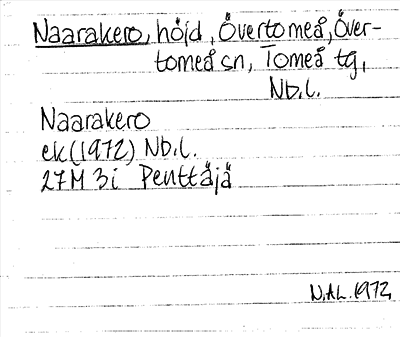 Naarakero, höjd, Övertorneå, Över-
torneå sn, Torneå tg,
Nb.l.
Naarakero
ek(1972) Nb.l.
27M 3i Penttäjä
NAL. 1972